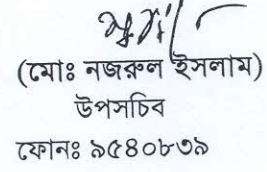 (মোঃ নজরুল ইসলাম)
উপসচিব
ফোনঃ ৯৫৪০৮৩৯